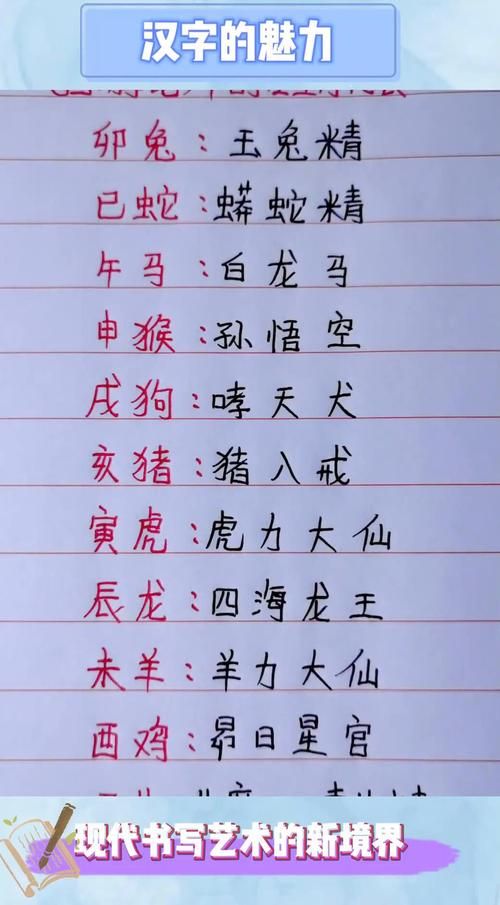 汉字的魅力
卯兔：玉兔精
巳蛇：蟒蛇精
午马：白龙马
申猴：孙悟空
戌狗：哮天犬
亥猪：猪八戒
寅虎：虎力大仙
辰龙：四海龙王
未羊：羊力大仙
酉鸡：昴日星官
现代书写艺术的新境界